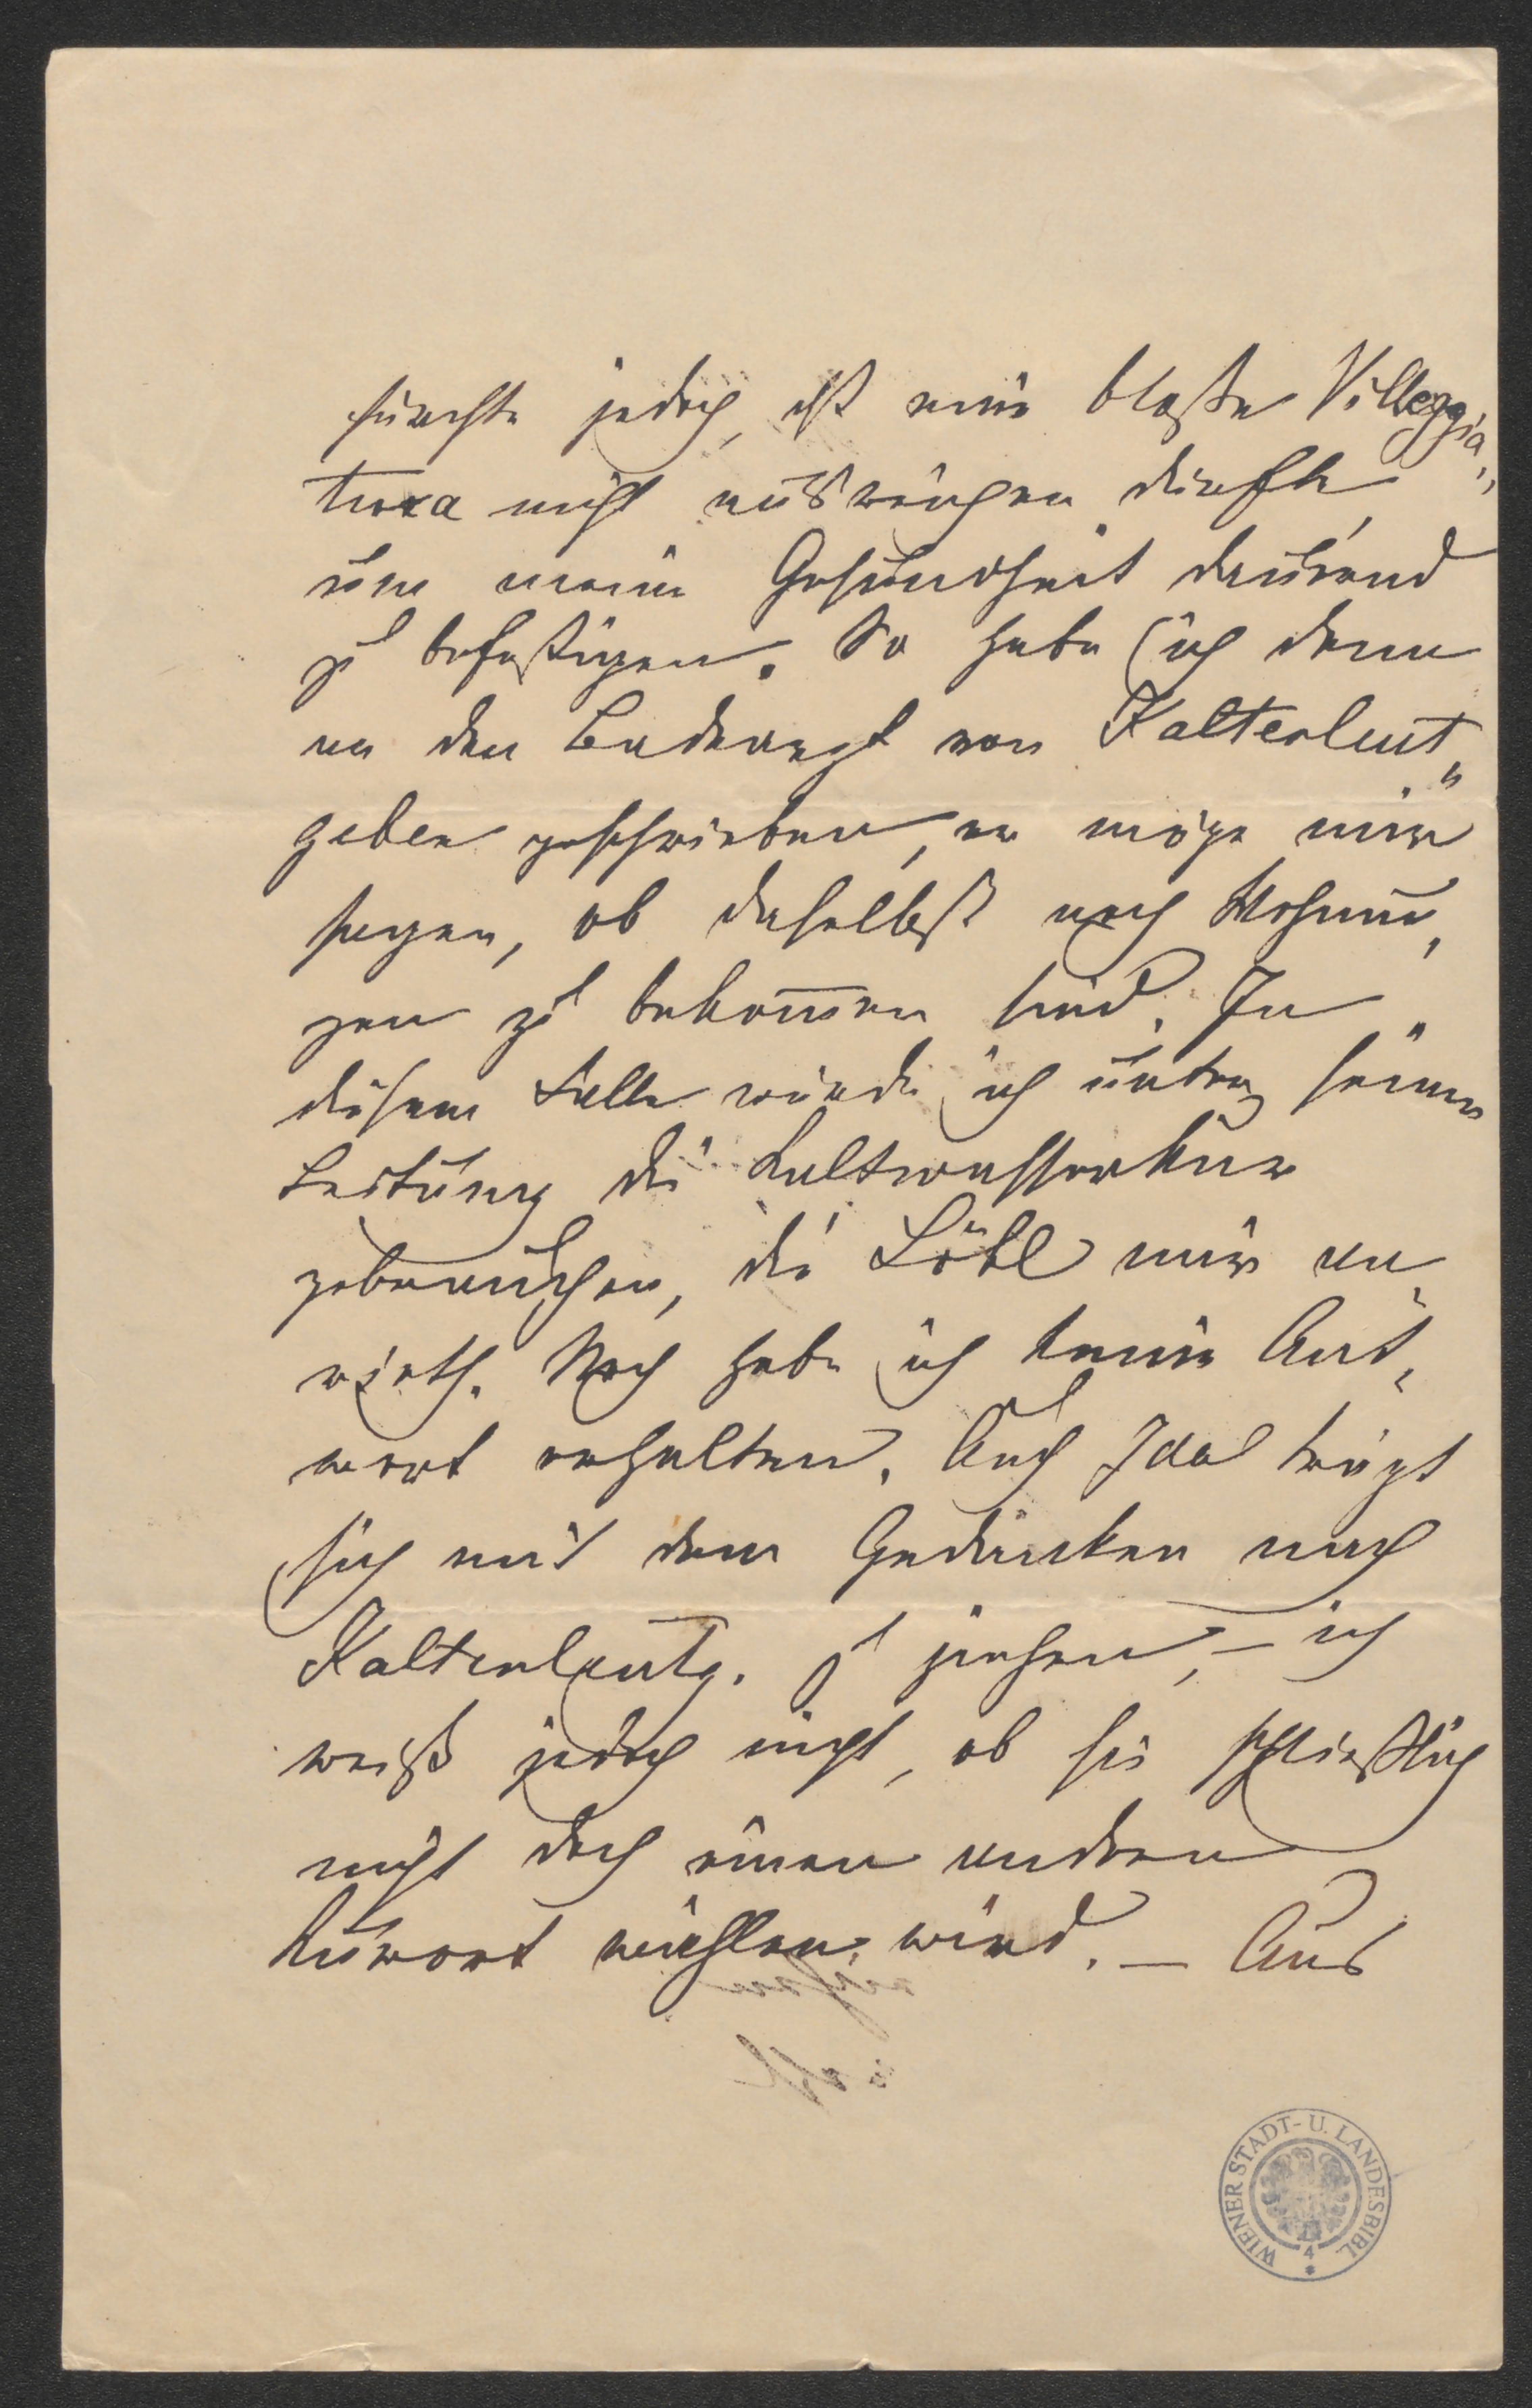 fürchte jedoch, daß eine bloße Villeggia-
tura nicht ausreichen dürfte,
um meine Gesundheit dauernd
zu befestigen. So habe ich denn
an den Badearzt von Kaltenleut-
geben geschrieben, er möge mir
sagen, ob daselbst noch Wohnun-
gen zu bekom̅en sind. In
diesem Falle würde ich unter seiner
Leitung die Kaltwasserkur
gebrauchen, die Löbl mir an-
rieth. Noch habe ich keine Ant-
wort erhalten. Auch Ida trägt
sich mit dem Gedanken nach
Kaltenleutg. zu ziehen, – ich
weiß jedoch nicht, ob sie schließlich
nicht doch einen andren
Kurort wählen wird. – Aus
WIENER STADT- U. LANDESBIBL.
4